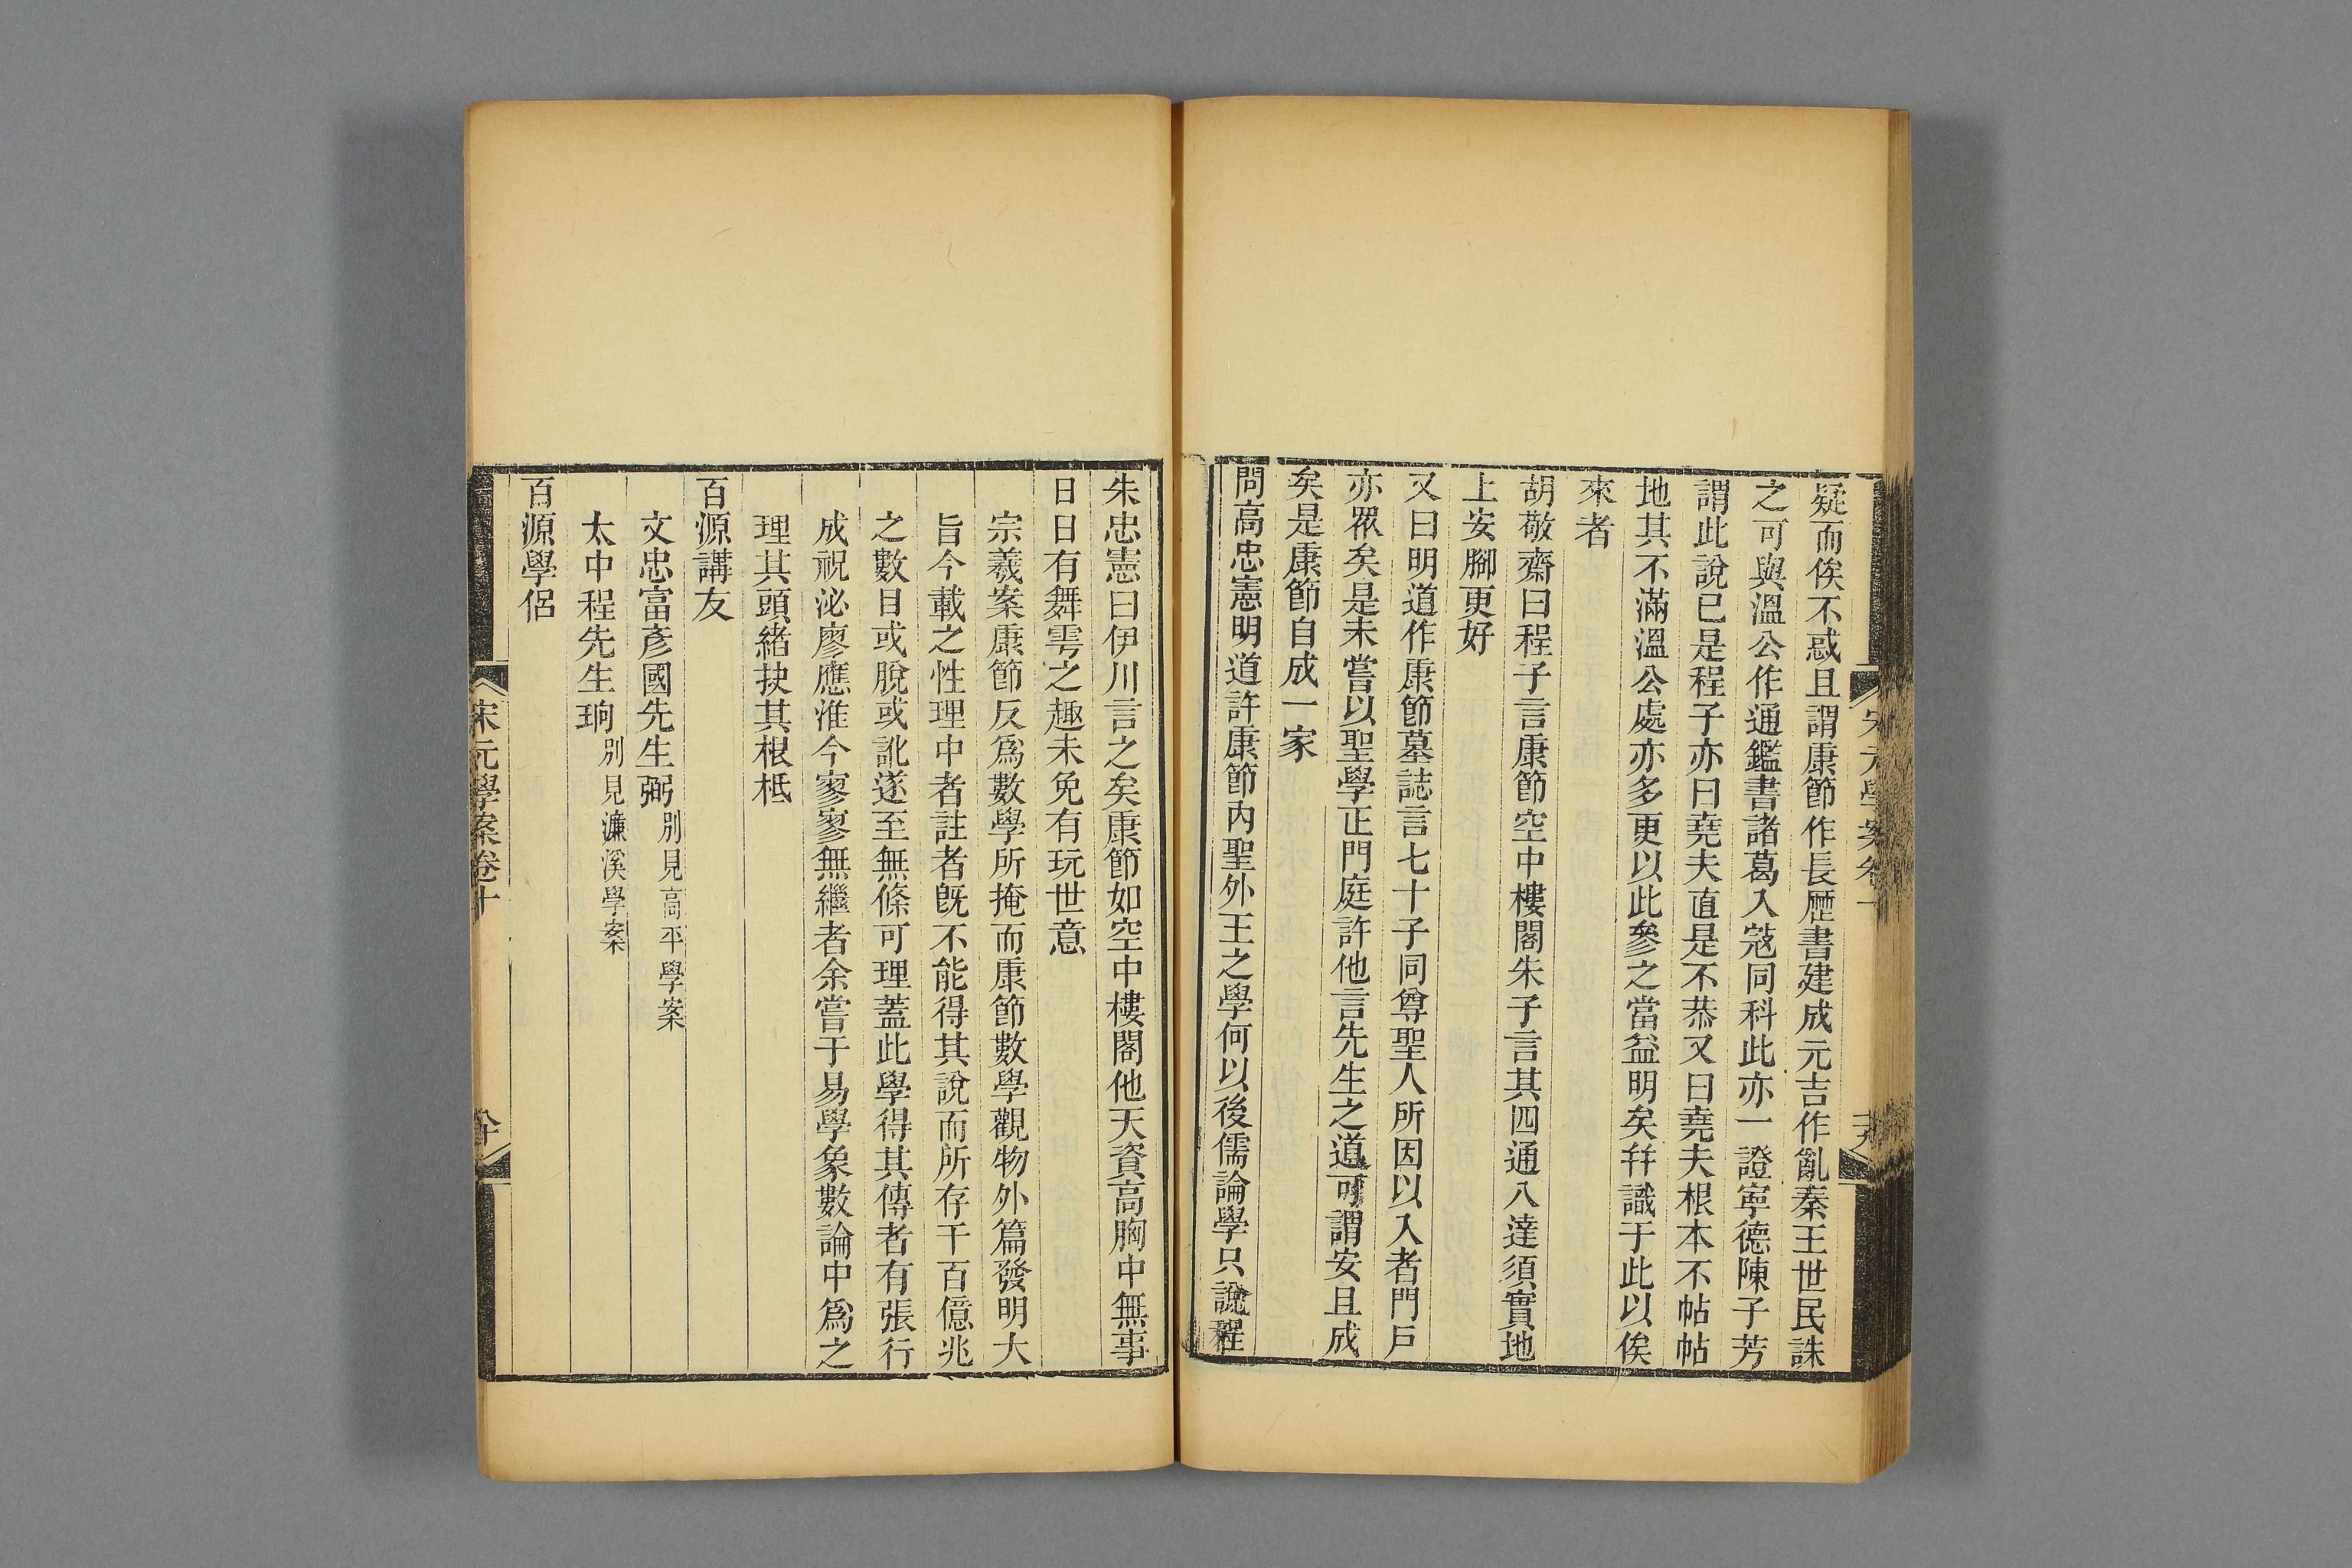 疑而俟不惑且謂康節作長歷書建成元吉作亂秦王世民誅
之可與溫公作通鑑書諸葛入寇同科此亦一證寧德陳子芳
謂此說已是程子亦曰堯夫直是不恭又曰堯夫根本不帖帖
地其不滿溫公處亦多更以此參之當益明矣幷識于此以俟
來者
胡敬齋曰程子言康節空中樓閣朱子言其四通八達須實地
上安腳更好
又曰明道作康節墓誌言七十子同尊聖人所因以入者門戶
亦眾矣是未嘗以聖學正門庭許他言先生之道可謂安且成
矣是康節自成一家
問高忠憲明道許康節內聖外王之學何以後儒論學只說程
朱忠憲曰伊川言之矣康節如空中樓閣他天資高胸中無事
日日有舞雩之趣未免有玩世意
宗羲案康節反爲數學所掩而康節數學觀物外篇發明大
旨今載之性理中者註者既不能得其說而所存千百億兆
之數目或脫或訛遂至無條可理蓋此學得其傳者有張行
成祝泌廖應淮今寥寥無繼者余嘗于易學象數論中爲之
理其頭緒抉其根柢
百源講友
文忠富彥國先生弼別見高平學案
太中程先生珦別見濂溪學案
百源學侶
宋元學案卷十
八十